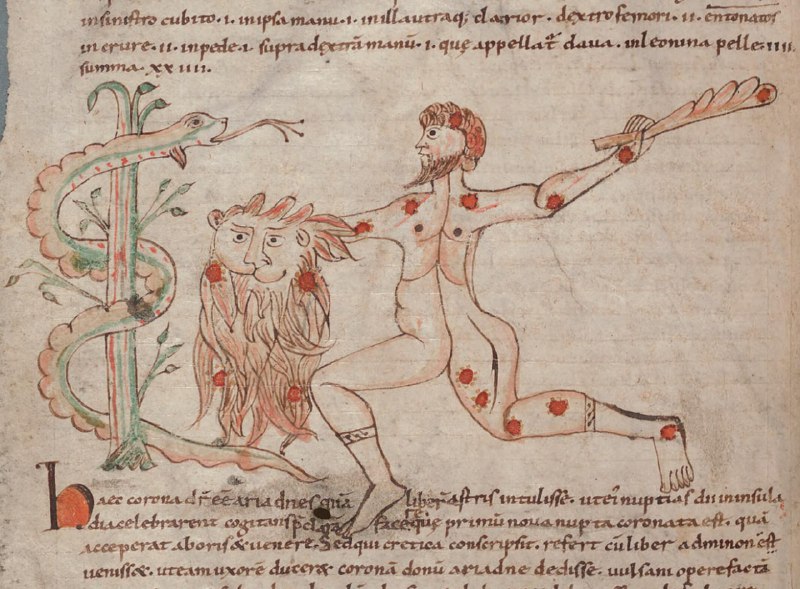 insinistro cubito · i · inipsa manu · i · inilla utraq; clarior · dextro femori · ii · entonatos
in crure · ii · inpede · i · supra dextrā manū · i · quę appellat̄ clava · inleonina pelle · iiii ·
summa · xxiiii ·
haec corona dr̄ eē ariadnes quā liber astris intulisse · ut ei nuptias dn̄ in insula
dia celebrarent cogitans p̄clara facere quę primū nova nupta coronata est · quā
acceperat aboris & venere · Sed qui cretica conscripsit · refert cū liber adminon ēst
venisset · ut eam uxorē duceret coronā donū ariadne dedisse · vulcani opere factā